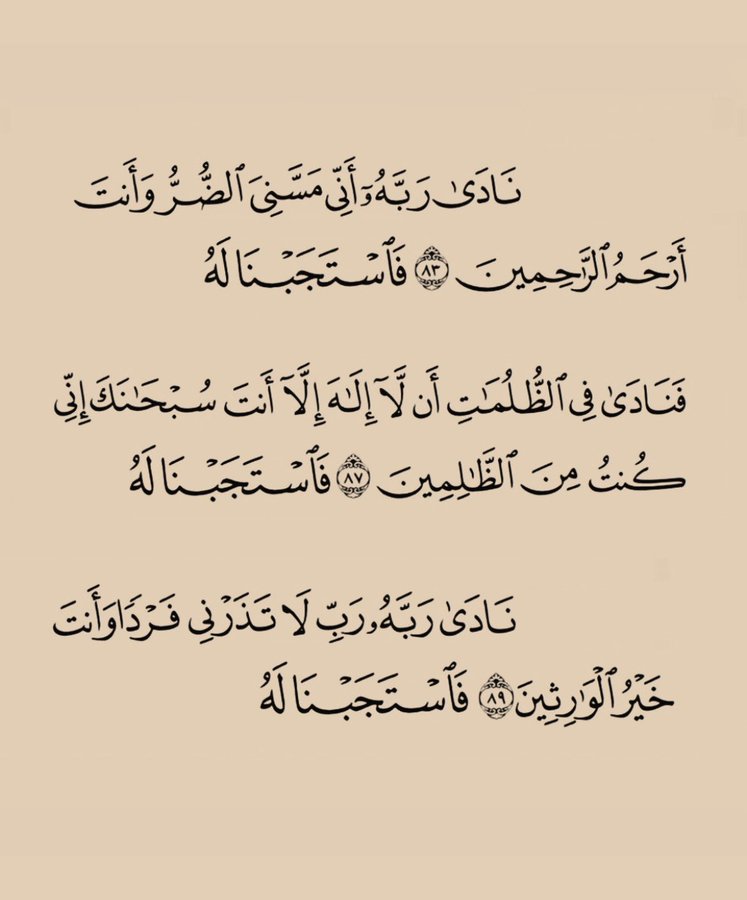 نَادَىٰ رَبَّهُۥٓ أَنِّي مَسَّنِيَ ٱلضُّرُّ وَأَنتَ
أَرْحَمُ ٱلرَّٰحِمِينَ ٨٣ فَٱسْتَجَبْنَا لَهُ
فَنَادَىٰ فِي ٱلظُّلُمَٰتِ أَن لَّآ إِلَٰهَ إِلَّآ أَنتَ سُبْحَٰنَكَ إِنِّي
كُنتُ مِنَ ٱلظَّٰلِمِينَ ٨٧ فَٱسْتَجَبْنَا لَهُ
نَادَىٰ رَبَّهُۥ رَبِّ لَا تَذَرْنِي فَرْدًا وَأَنتَ
خَيْرُ ٱلْوَٰرِثِينَ ٨٩ فَٱسْتَجَبْنَا لَهُ